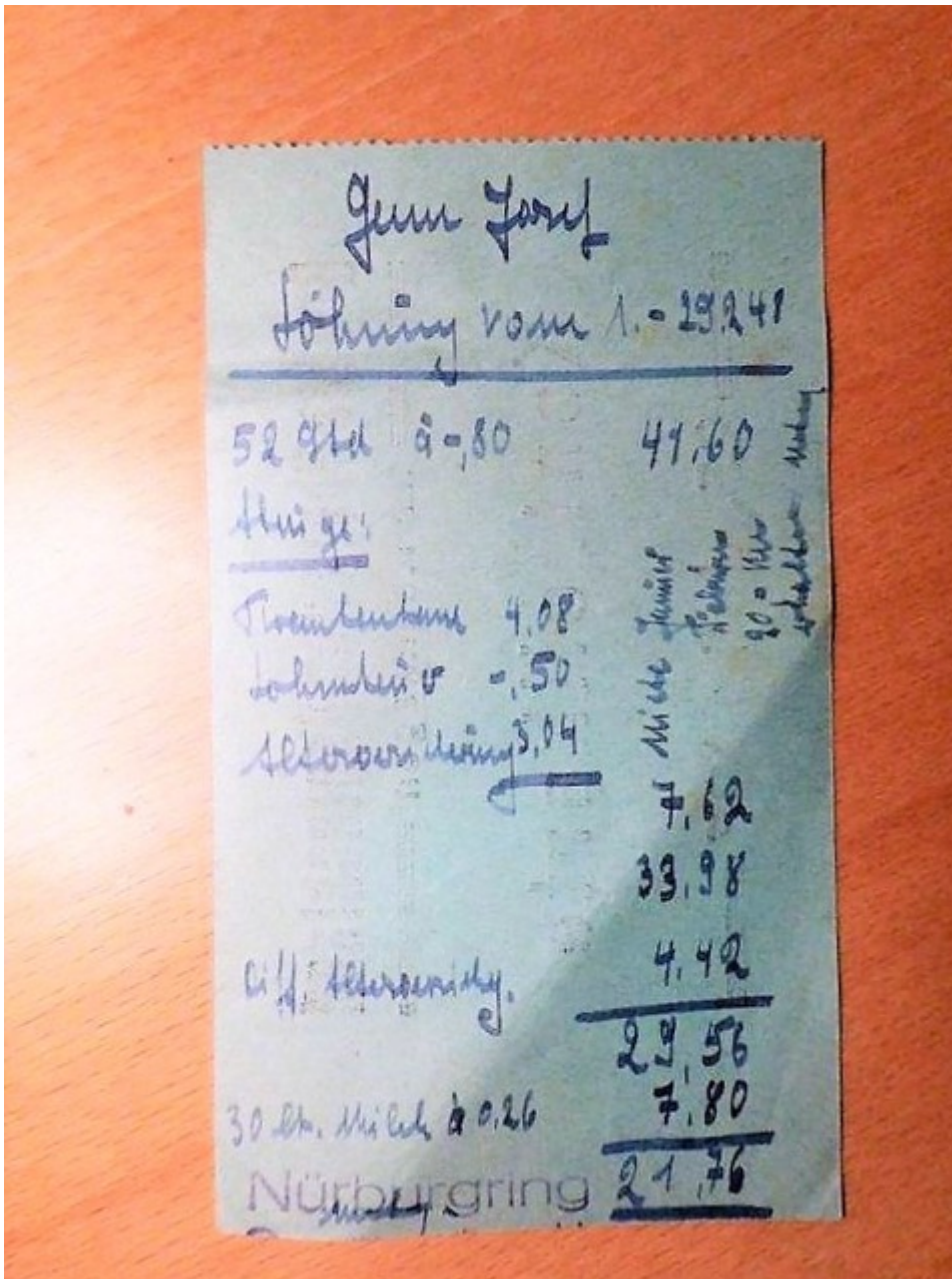 Josef
Löhnung vom 1.-29.2.48
52 Std à -,80 41,60
Abzüge:
Krankenkasse 4,08
Lohnsteuer -,50
Altersversicherung 3,04
7,62
33,98
Diff. Altersversichg. 4,42
29,56
30 ltr. Milch à 0,26 7,80
21,76
Nürburgring
Miete Januar
Februar
20,-
erhalten